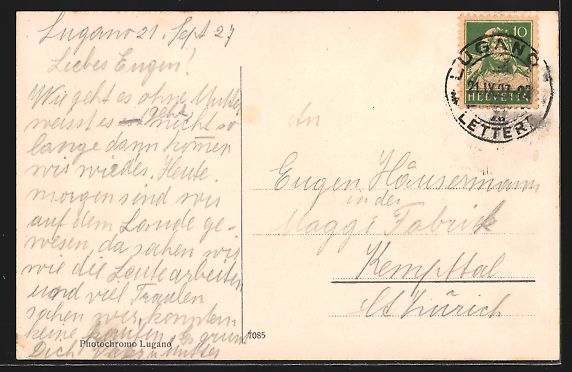 Lugano 21. Sept 27
Liebes Eugen!
Wie geht es ohne Mutter
weisst es geht nicht so
lange dann kommen
wir wieder. Heute
morgen sind wir
auf dem Lande ge-
wesen, da sahen wir
wie die Leute arbeiten
und viel Trauben
sahen wir, konnten
keine kaufen. Es grüsst
Dich Mutter
Photochromo Lugano
7085
10
HELVETIA
LUGANO
21.IX.27
LETTERE
An
Eugen Häusermann
in der
Maggi Fabrik
Kempttal
Ct Zürich